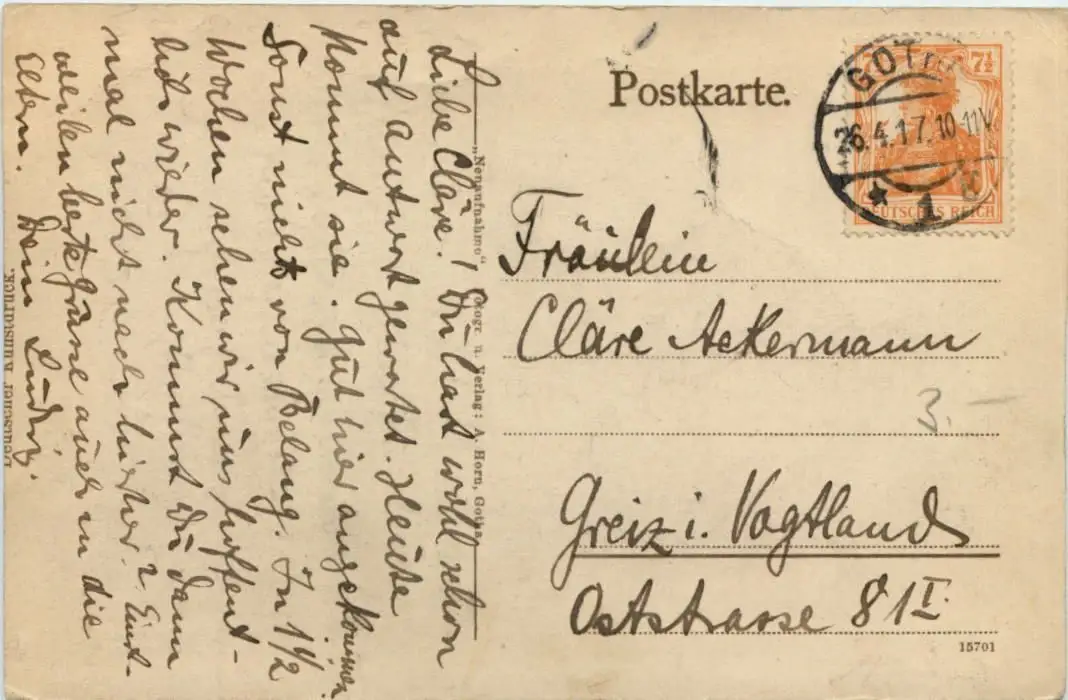 Postkarte.
GOTH
26.4.17.10-11V.
* 1 c
7½
DEUTSCHES REICH
Fräulein
Cläre Ackermann
3.-
Greiz i. Vogtland
Oststrasse 8 I I.
15701
Liebe Cläre! Du hast wohl schon
auf Antwort gewartet. Heute
kommt sie. Gut hier angekommen.
Sonst nichts von Belang. In 1½
Wochen sehen wir uns hoffent-
lich wieder. Kommst Du denn
mal nicht nach hierher? Einst-
weilen beste Grüße auch an die
Eltern. Dein
„Neuaufnahme“ u. Verlag: A. Horn, Gotha.
Deutscher Kunstdruck.